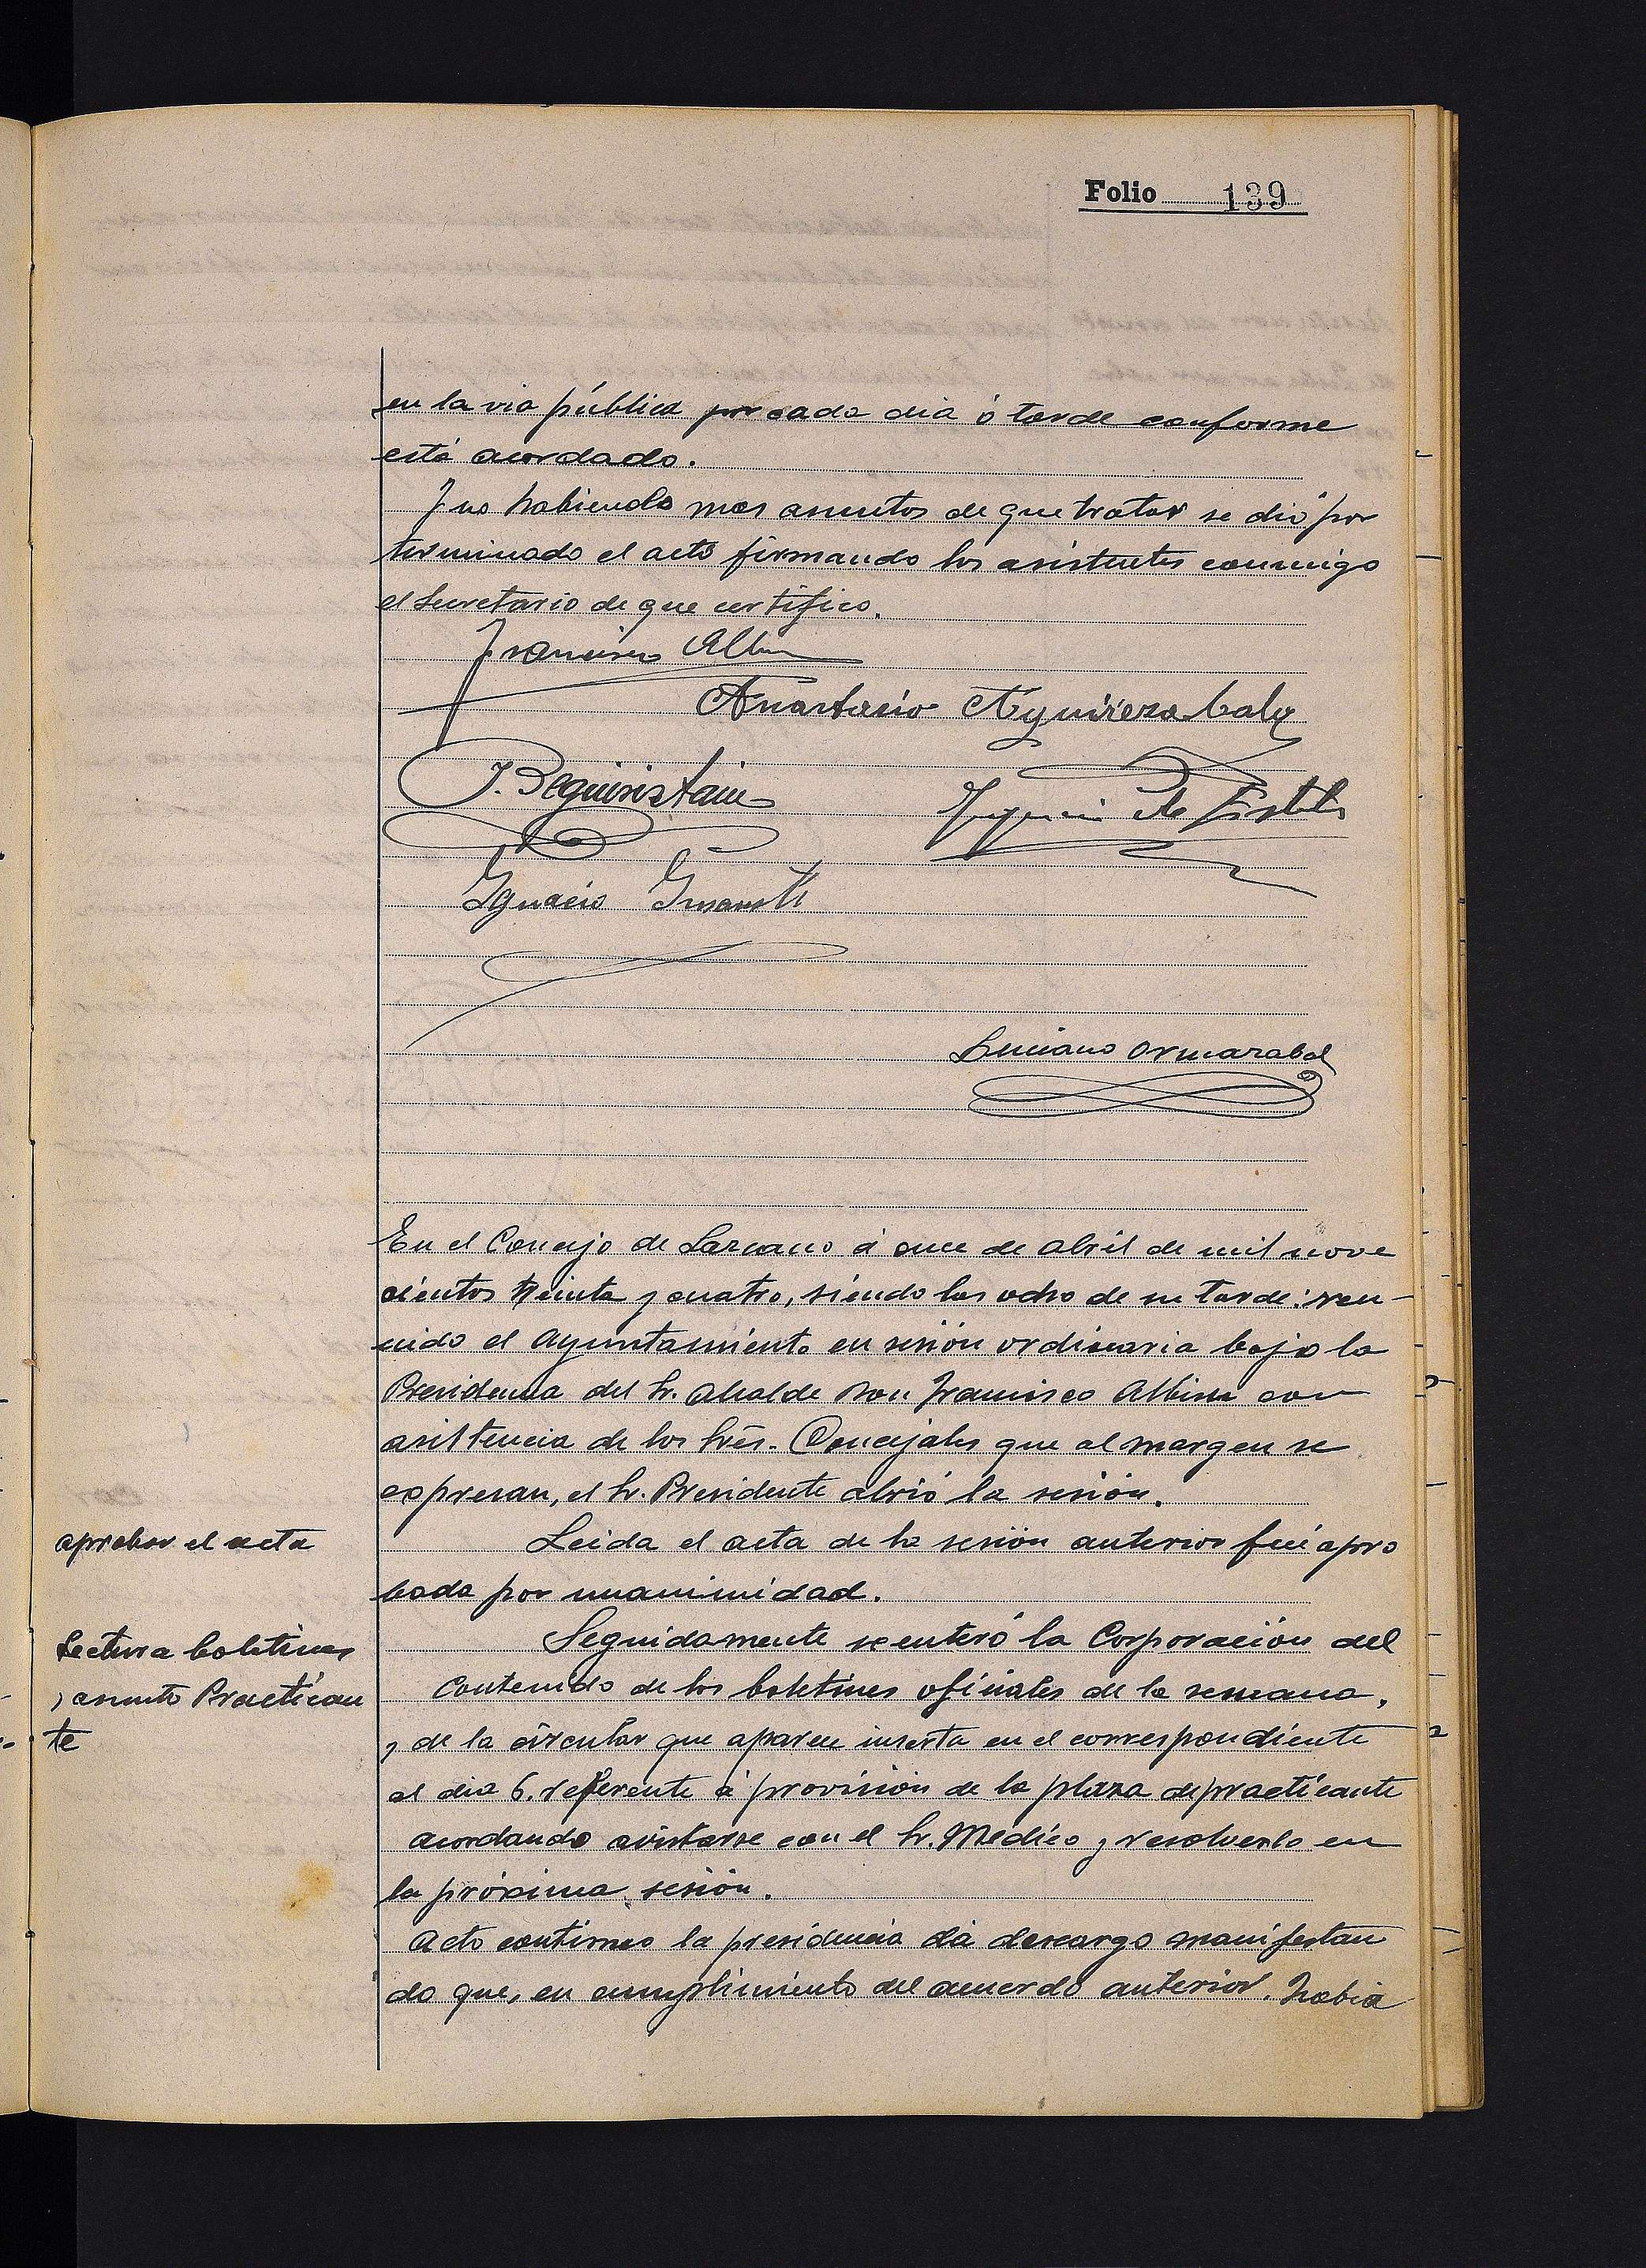 Folio 139
en la via pública por cada dia ó tarde conforme
está acordado.
Y no habiendo mas asuntos de que tratar se dió por
terminado el acto firmando los asistentes conmigo
el Secretario de que certifico.
Francisco Albisu
Anastasio Aguirrezabala
J. Beguiristain
Ignacio
Luciano Ormazabal
En el Concejo de Lazcano á once de abril de mil nove
cientos treinta y cuatro, siendo las ocho de su tarde: reu-
nido el Ayuntamiento en sesión ordinaria bajo la
Presidencia del Sr. Alcalde Don Francisco Albisu con
asistencia de los Srés. Concejales que al margen se
expresan, el Sr. Presidente abrió la sesión.
aprobar el acta
Leida el acta de la sesión anterior fué apro
bada por unanimidad.
Lectura boletines
y asunto Practican
te
Seguidamente se enteró la Corporación del
contenido de los boletines oficiales de la semana,
y de la circular que aparece inserta en el correspondiente
al dia 6. referente á provisión de la plaza de practicante
acordando avistarse con el Sr. Médico y resolverlo en
la próxima sesión.
Acto continuo la presidencia dá descargo manifestan
do que, en cumplimiento del acuerdo anterior, habia